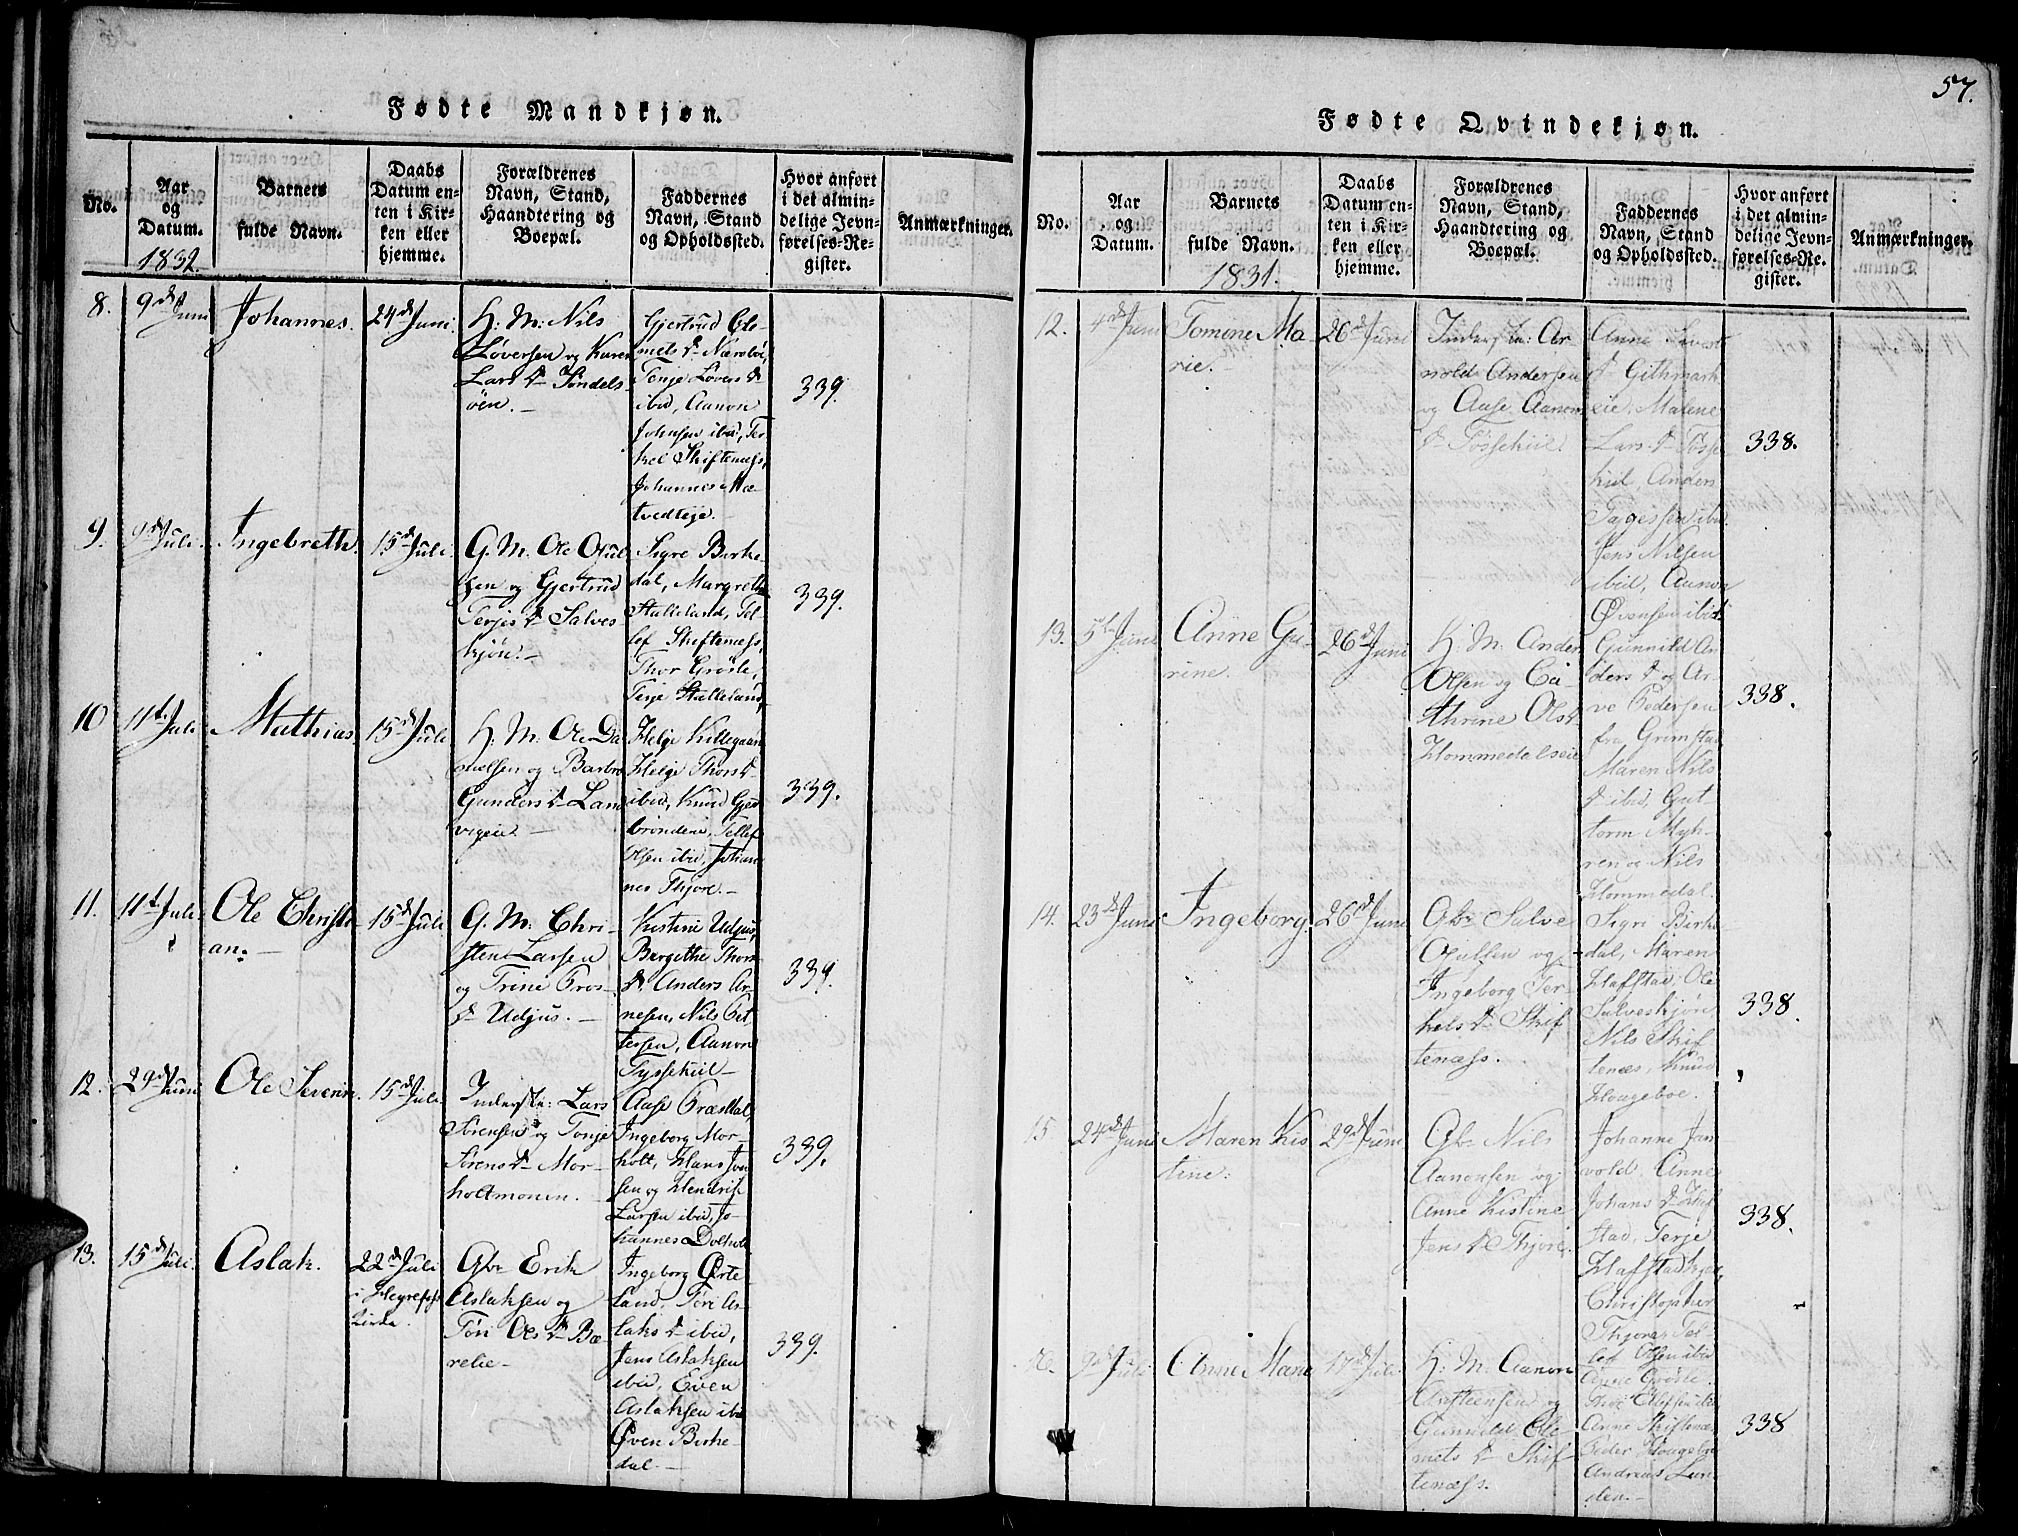 57.
Fødte Mandkjøn.
No.
Aar
og
Datum.
1832.
Barnets
fulde Navn.
Daabs
Datum en-
ten i Kir-
ken eller
hjemme.
Forældrenes
Navn, Stand,
Haandtering og
Boepæl.
Faddernes
Navn, Stand
og Opholdssted.
Hvor anført
i det almin-
delige Jevn-
førelses-Re-
gister.
Anmærkninger.
8.
9d Juni
Johannes.
24d Juni.
H: M: Nils
Løversen og Karen
Lars D. Tøndels-
øen.
Gjertrud Cle-
mets D. Nærebøe,
Tonje Løvers D.
ibid, Aanon
Johnsen ibid, Ter-
kel Skiftenæss,
Johannes Mæ-
tvedteje.
339.
9.
9d Juli.
Ingebreth.
15d Juli.
G. M. Ole Ojul-
sen og Gjertrud
Terjes D. Salves-
kjøn.
Sigre Birke-
dal, Margrethe
Stalleland, Tel-
lef Skiftenæss,
Thor Grøsle,
Terje Stalleland,
339.
10
11te Juli
Mathias.
15d Juli
H. M. Ole Da-
nielsen og Barbro
Gunders D. Land
vigeie.
Helje Killegaan
Helje Thors D.
ibid, Knud Gjes
brøndene, Tellef
Olsen ibid, Johan-
nes Thjore.
339.
11.
11te Juli.
Ole Christi-
an.
15d Juli.
G. M. Chri-
sten Larsen
og Trine Bros-
D. Udjus.
Kistine Udjus,
Bergithe Thors
D. Anders Ar-
nesen, Nils Pet-
tersen, Aanon
Tyssekiil
339.
12.
29d Juni
Ole Severin.
15d Juli.
Inderste: Lars
Sørensen og Tonje
Sørens D. Mor-
holtmonen.
Aase Præstdal,
Ingeborg Mor-
holt, Hans Iver
sen og Hendrik
Larsen ibid, Jo-
hannes Dolholt
339.
13.
15d Juli.
Aslak.
22d Juli
i Heyrefoss
Kirke.
Gbr Erik
Aslaksen og
Tøri Ols D. Bæ-
relie
Ingeborg Øvrte-
land, Tøri As-
laks D. ibid,
Jens Aslaksen
ibid, Even
Aslaksen ibid
Øven Birke-
dal.
339.
Fødte Qvindekjøn.
No.
Aar
og
Datum.
Barnets
fulde Navn.
1831.
Daabs
Datum en-
ten i Kir-
ken eller
hjemme.
Forældrenes
Navn, Stand,
Haandtering og
Boepæl.
Faddernes
Navn, Stand
og Opholdssted.
Hvor anført
i det almin-
delige Jevn-
førelses-Re-
gister.
Anmærkninger.
12.
4d Juni
Tomine Ma-
rie.
26d Juni
Inderste: Ar-
nold Andersen
og Aase Aanon
D. Tøssekiil.
Anne
D. Githmark
eie, Malene
Lars D. Tøsse
kiil, Anders
Tagessen ibid
Jens Nilsen
ibid, Aanon
Øvensen ibid.
338.
13.
5te Juni
Anne Ga-
rine.
26d Juni
H: M: Anders
Olsen og Ca-
thrine Ols D.
Hommedalseie
Gunnild An-
ders D. og Ar-
ve Pedersen
fra Grimstad
Maren Nils
D. ibid, Gut-
torm Myh-
ren og Nils
Hommedal.
338.
14.
23d Juni
Ingeborg.
26d Juni
Gbr Salve
Ojulsen og
Ingeborg Ter-
kels D. Skif
tenæss.
Sigri Birke
dal, Maren
Hafstad, Ole
Salveskjøn,
Nils Skif
tenæs, Knud
Hougeboe.
338.
15
24d Juni
Maren Kis
tine.
29d Juni
Gbr Nils
Aanonsen og
Anne Kistine
Jens D. Thjore.
Johanne Jan
vold, Anne
Johans D. Haf
stad, Terje
Hafstadkjær,
Christopher
Thjore, Tel-
lef Olsen ibid
338.
16.
9de Juli
Anne Marie
17d Juli.
H: M: Aanon
Christensen og
Gunnild Cle-
mets D. Skif
tenæss.
Anne Grøsle.
Anne Skiftenæs
Peder Hougeboe
Andreas Lun-
den.
338